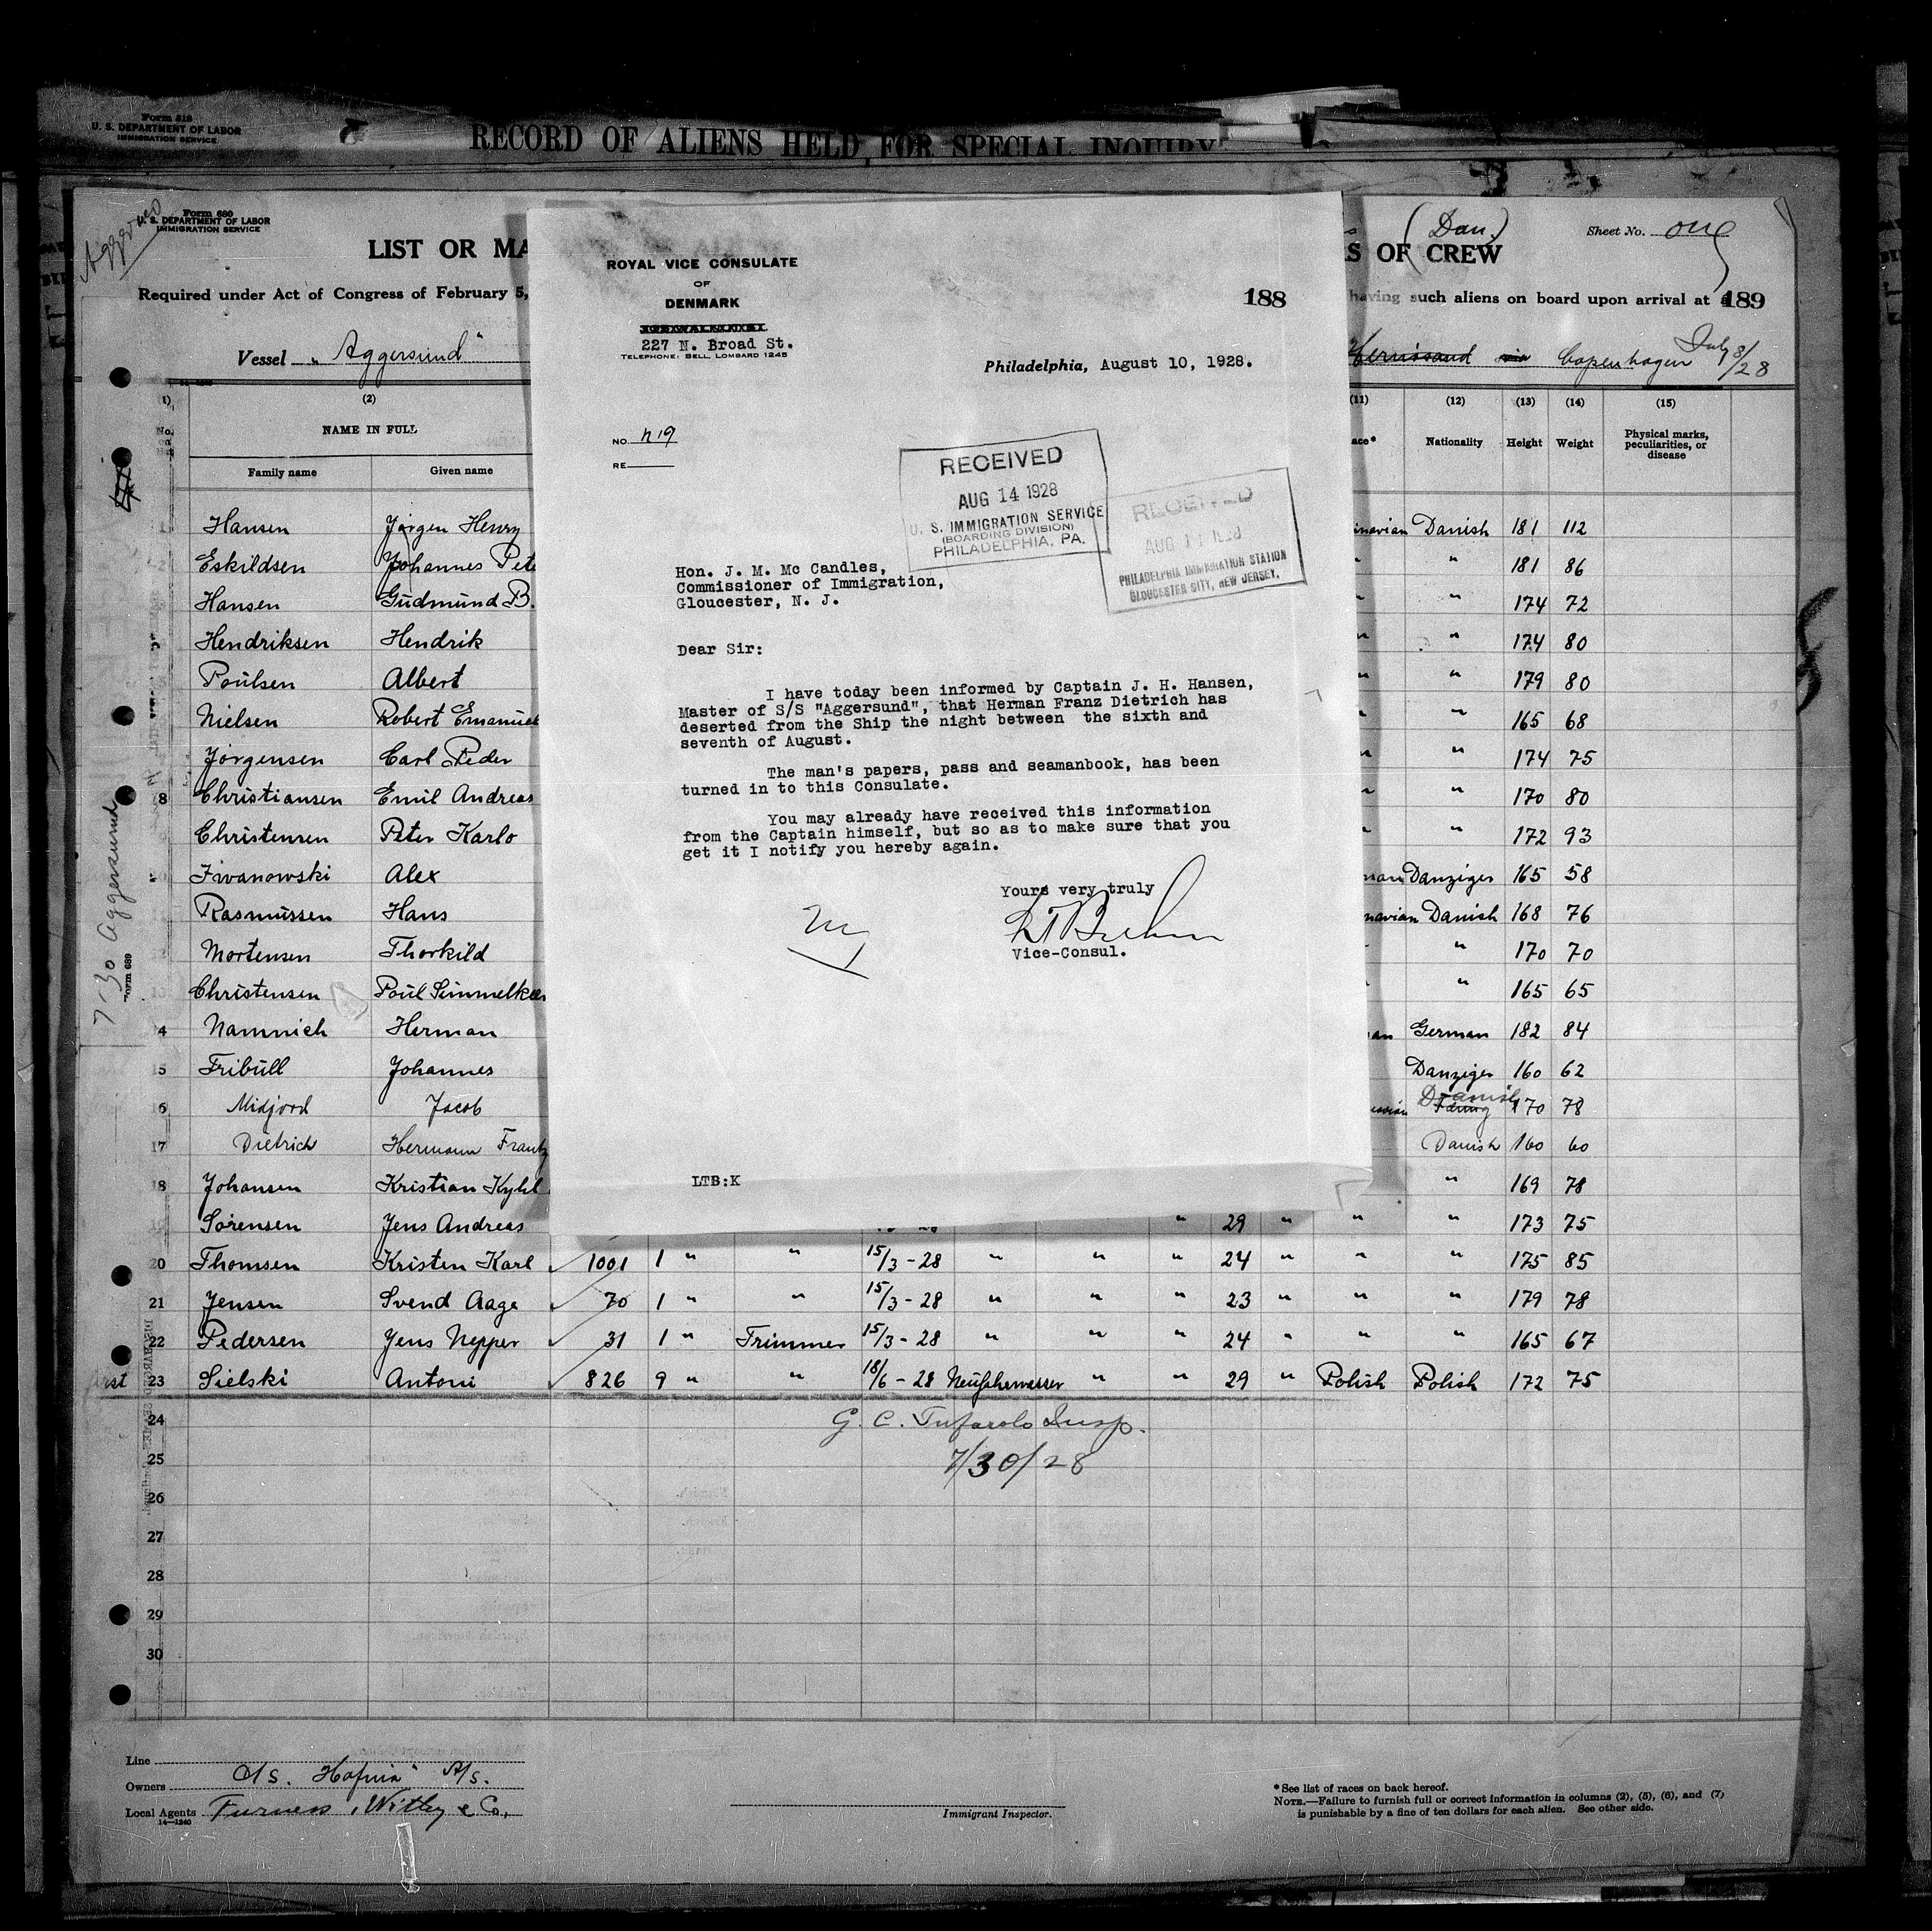 Form 618
U. S. DEPARTMENT OF LABOR
IMMIGRATION SERVICE
RECORD OF ALIENS HELD FOR SPECIAL INQUIRY
Form 680
U. S. DEPARTMENT OF LABOR
IMMIGRATION SERVICE
LIST OR MA
S OF CREW
(Dan.)
Sheet No. one
Required under Act of Congress of February 5,
having such aliens on board upon arrival at
189
Vessel "Aggersund"
Copenhagen July 8/28
(2)
NAME IN FULL
Family name Given name
(11) (12) (13) (14) (15)
Nationality Height Weight Physical marks, peculiarities, or disease
Hansen Jørgen Henry
inavian Danish 181 112
Eskildsen Johannes Pete
" 181 86
Hansen Gudmund B.
" 174 72
Hendriksen Hendrik
" 174 80
Poulsen Albert
" 179 80
Nielsen Robert Emanuel
" 165 68
Jørgensen Carl Peder
" 174 75
8 Christiansen Emil Andreas
" 170 80
Christensen Peter Karlo
" 172 93
Alex
man Danziger 165 58
Rasmussen Hans
navian Danish 168 76
Mortensen Thorkild
" 170 70
13 Christensen Poul
" 165 65
14 Namnich Herman
an German 182 84
15 Fribull Johannes
Danziger 160 62
16 Midjord Jacob
Danish 170 78
17 Dietrich Hermann Frantz
Danish 160 60
18 Johansen Kristian Kyhl
" 169 78
Sørensen Jens Andreas
29 " " " 173 75
20 Thomsen Kristen Karl 1001 1 " " 15/3-28 " " " 24 " " " 175 85
21 Jensen Svend Aage 70 1 " " 15/3-28 " " " 23 " " " 179 78
22 Pedersen Jens Nepper 31 1 " Trimmer 15/3-28 " " " 24 " " " 165 67
23 Sielski Antoni 826 9 " " 18/6-28 Neufahrwasser " " 29 " Polish Polish 172 75
24
G. C. Tufarolo Insp.
25
7/30/28
26
27
28
29
30
7-30 Aggersund
Form 689
Line
Owners D/S. Hafnia" A/S.
Local Agents Furness, Withy & Co.,
14—1240
Immigrant Inspector.
*See list of races on back hereof.
NOTE.—Failure to furnish full or correct information in columns (2), (5), (6), and (7)
is punishable by a fine of ten dollars for each alien. See other side.
ROYAL VICE CONSULATE
OF
DENMARK
227 N. Broad St.
TELEPHONE: BELL, LOMBARD 1245
188
Philadelphia, August 10, 1928.
NO.
RE
RECEIVED
AUG 14 1928
U. S. IMMIGRATION SERVICE
(BOARDING DIVISION)
PHILADELPHIA, PA.
RECEIVED
AUG 11 1928
PHILADELPHIA IMMIGRATION STATION
GLOUCESTER CITY, NEW JERSEY.
Hon. J. M. Mc Candles,
Commissioner of Immigration,
Gloucester, N. J.
Dear Sir:
I have today been informed by Captain J. H. Hansen,
Master of S/S "Aggersund", that Herman Franz Dietrich has
deserted from the Ship the night between the sixth and
seventh of August.
The man's papers, pass and seamanbook, has been
turned in to this Consulate.
You may already have received this information
from the Captain himself, but so as to make sure that you
get it I notify you hereby again.
Yours very truly
Vice-Consul.
LTB:K